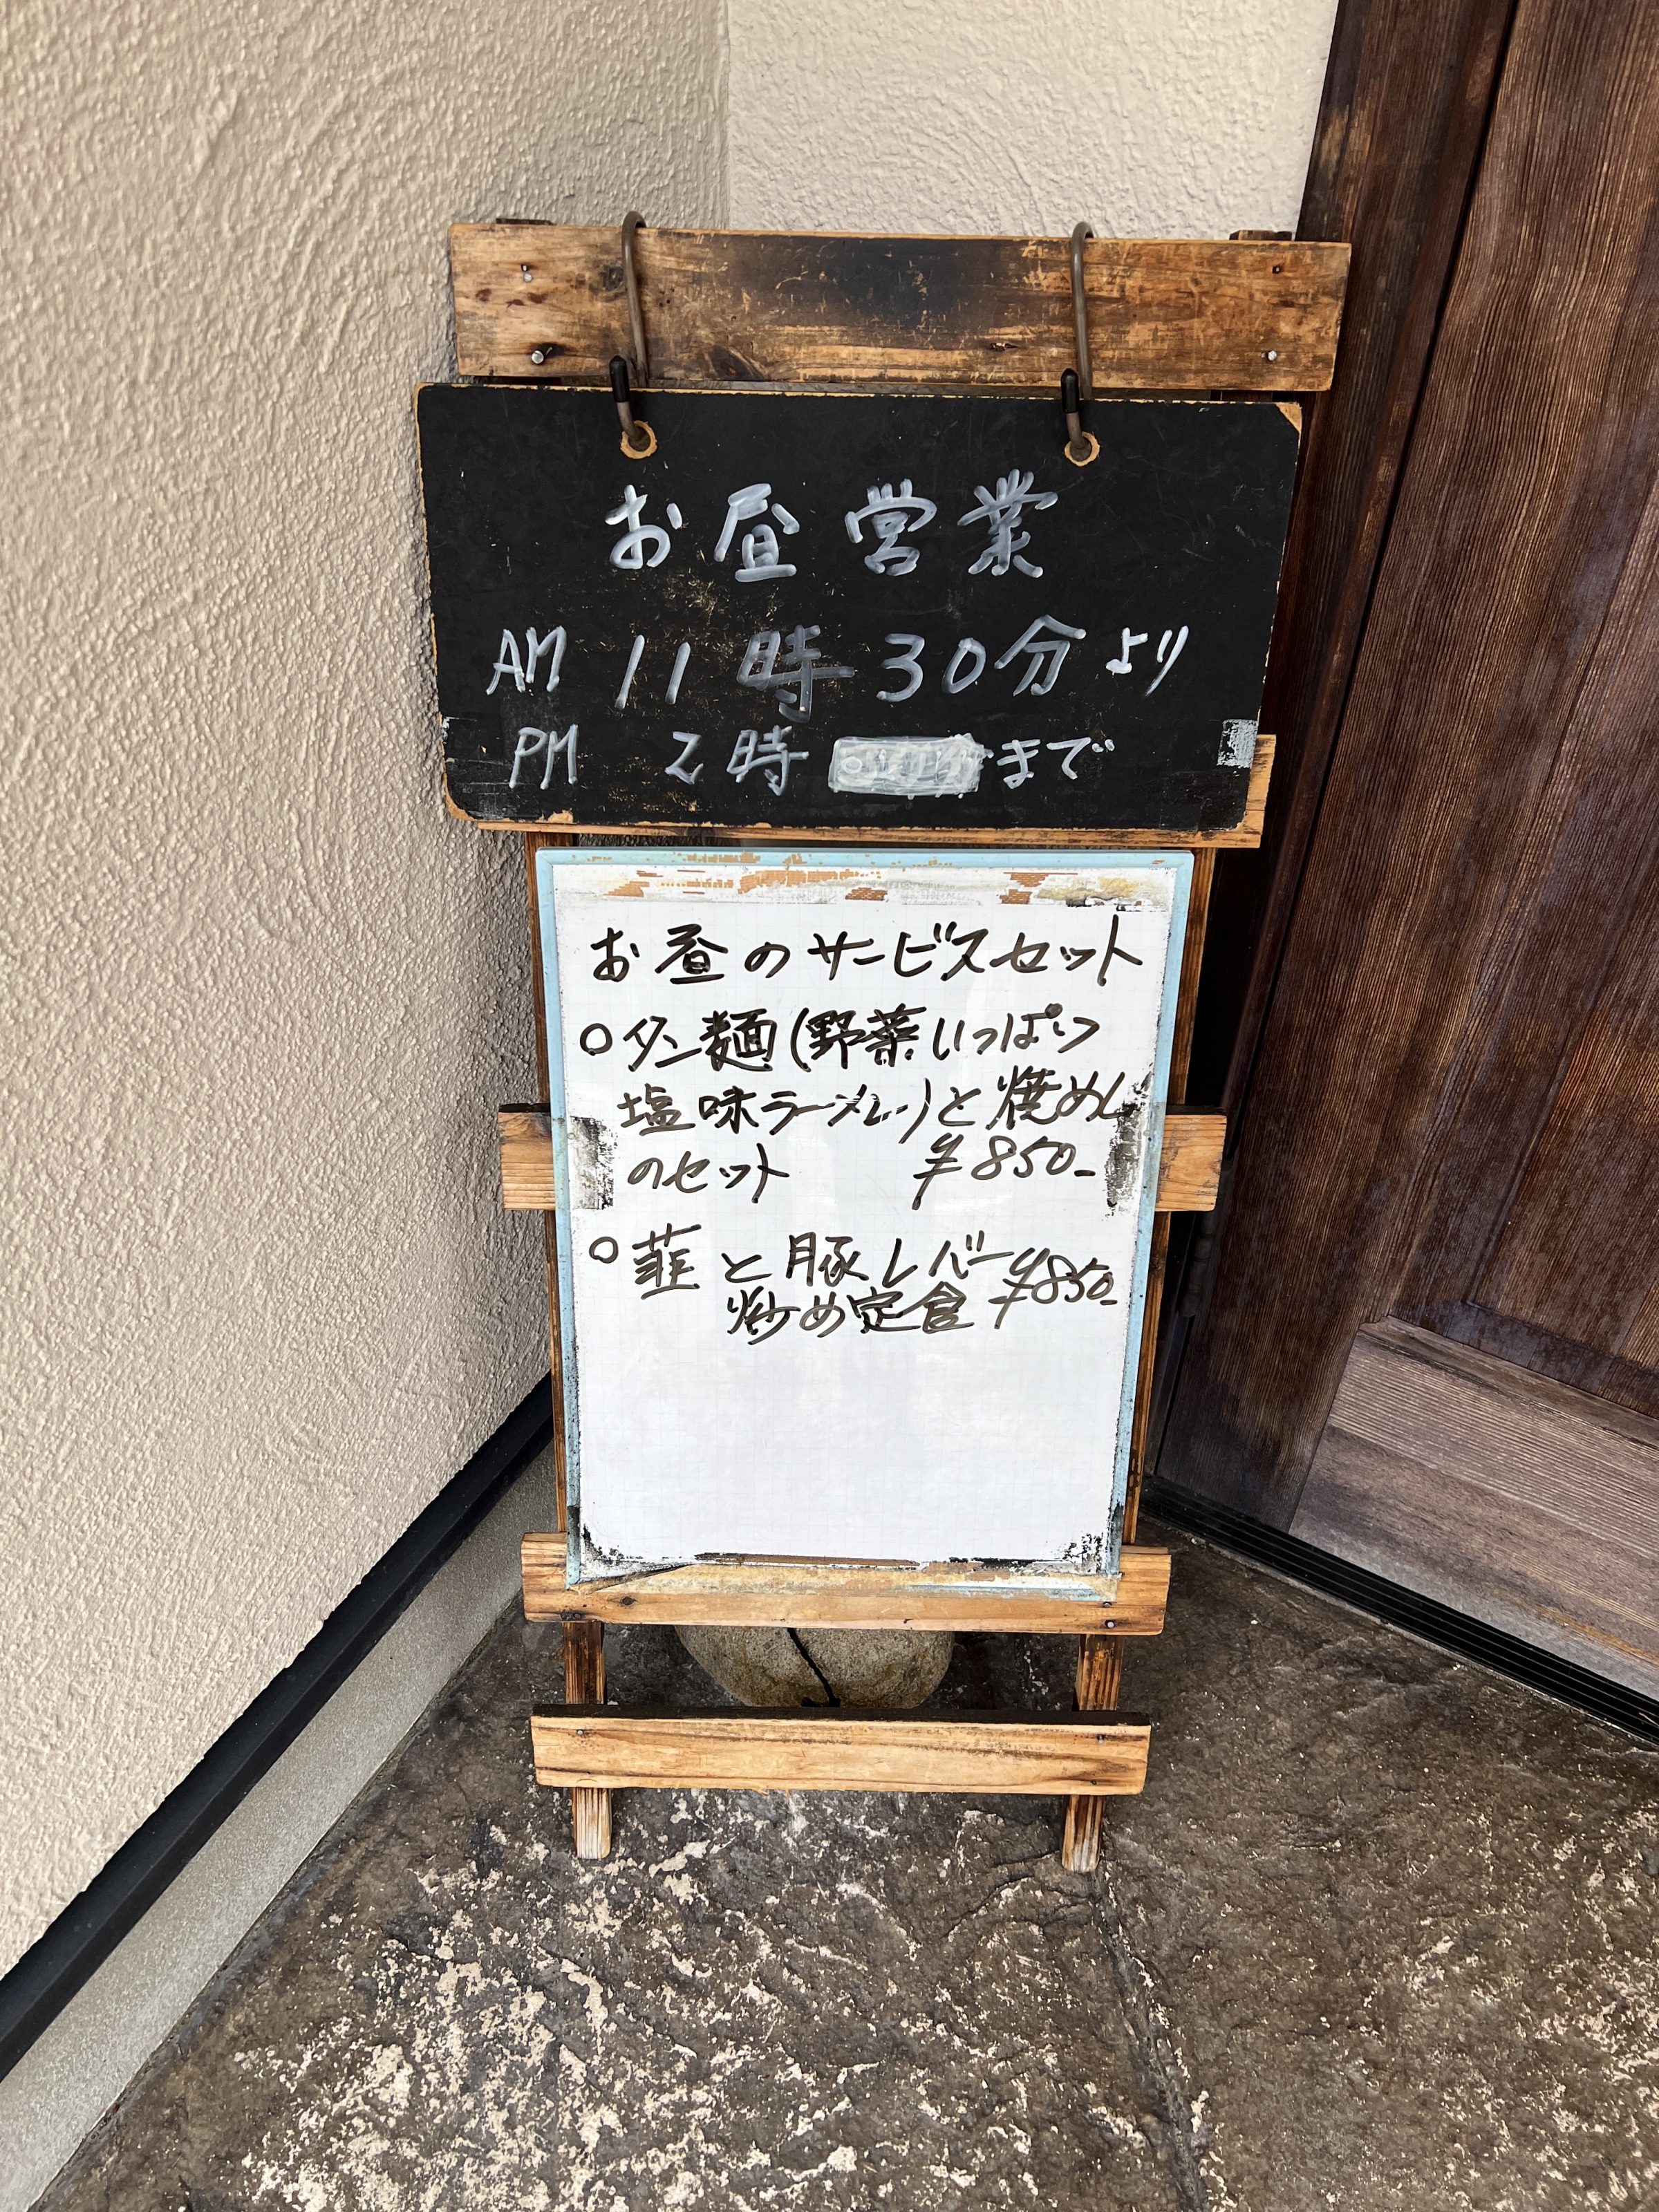 お昼営業
AM 11時30分より
PM 2時 まで
お昼のサービスセット
○タン麺(野菜いっぱい
塩味ラーメン)と焼めし
のセット ¥850-
○韮と豚レバー
炒め定食 ¥850-